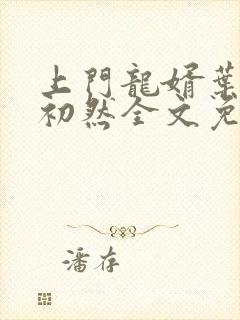 上門龍婿葉
初然全文免
潘存